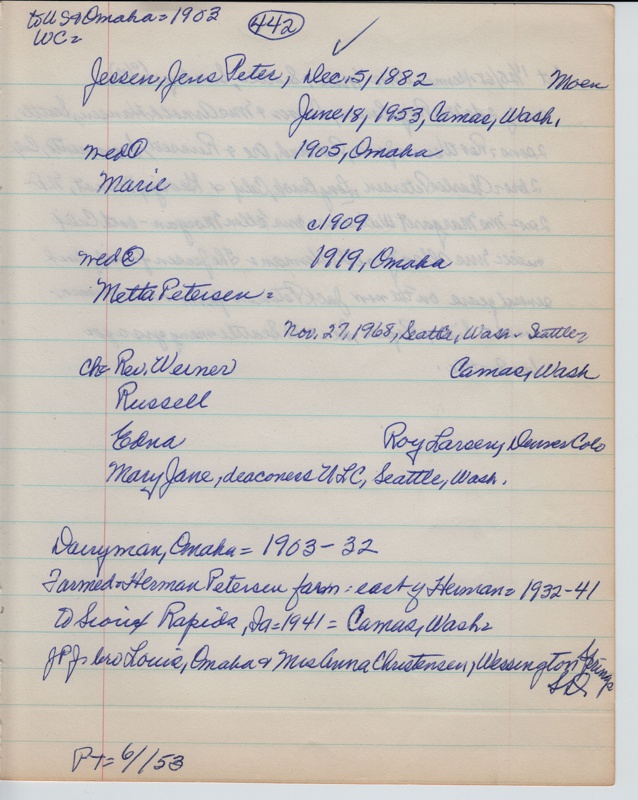 to US & Omaha = 1903
WC =
442
Jessen, Jens Peter, Dec. 5, 1882 Moen
June 18, 1953, Camas, Wash.
wed ① 1905, Omaha
Marie
c1909
wed ② 1919, Omaha
Metta Petersen =
Nov. 27, 1968, Seattle, Wash - Seattle
ch = Rev. Werner Camas, Wash
Russell
Edna Roy Larsen, Denver Colo
Mary Jane, deaconess ULC, Seattle, Wash.
Dairyman, Omaha = 1903-32
Farmed = Herman Petersen farm = east of Herman = 1932-41
to Sioux Rapids, Ia = 1941 = Camas, Wash =
JPJs bro Louis, Omaha & Mrs Anna Christensen, Wessington Springs
S.D.
PT = 6/1/53